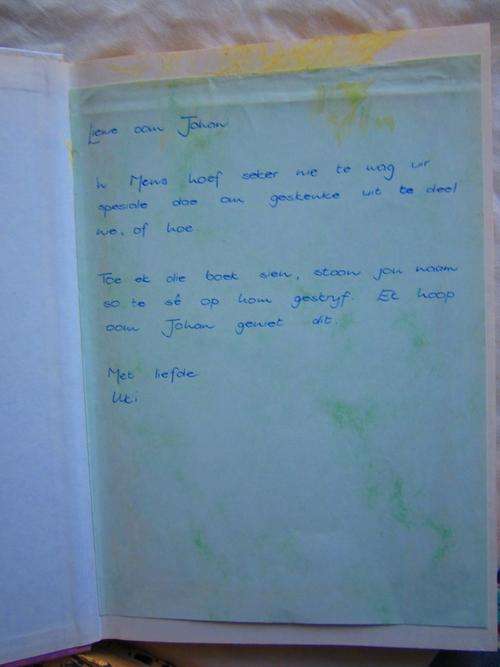 Liewe oom Johan
'n Mens hoef seker nie te wag vir
spesiale dae om geskenke uit te deel
nie, of hoe.
Toe ek die boek sien, staan jou naam
so te sê op hom geskryf. Ek hoop
oom Johan geniet dit.
Met liefde